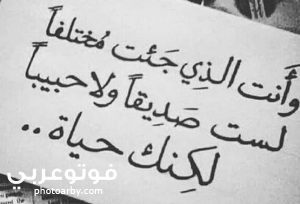 وَأنت الذِي جَئت مُختلفاً
لست صَدِيقاً ولا حبيباً
لكِنك حياة ..
فوتوعربي
photoarby.com